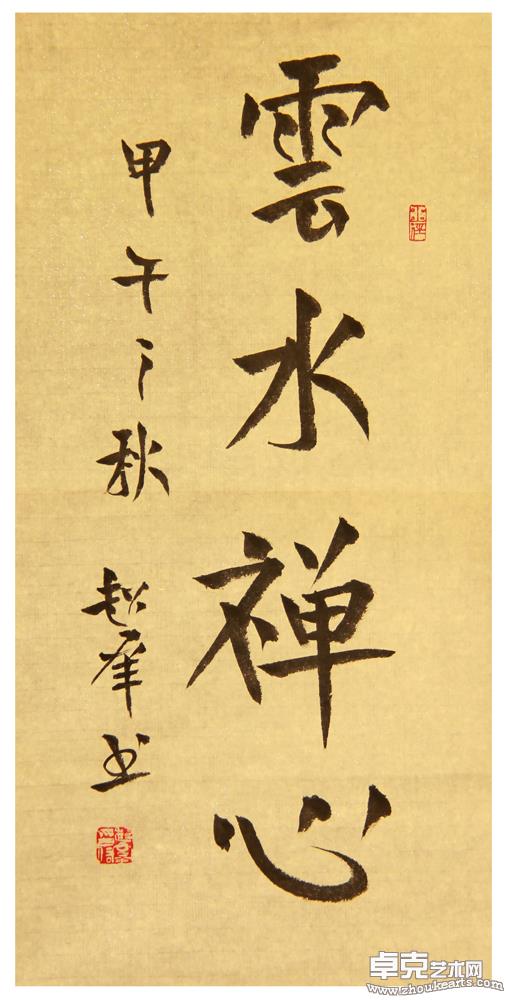 雲水禅心
甲午之秋
书
卓克艺术网
www.zhoukearts.com